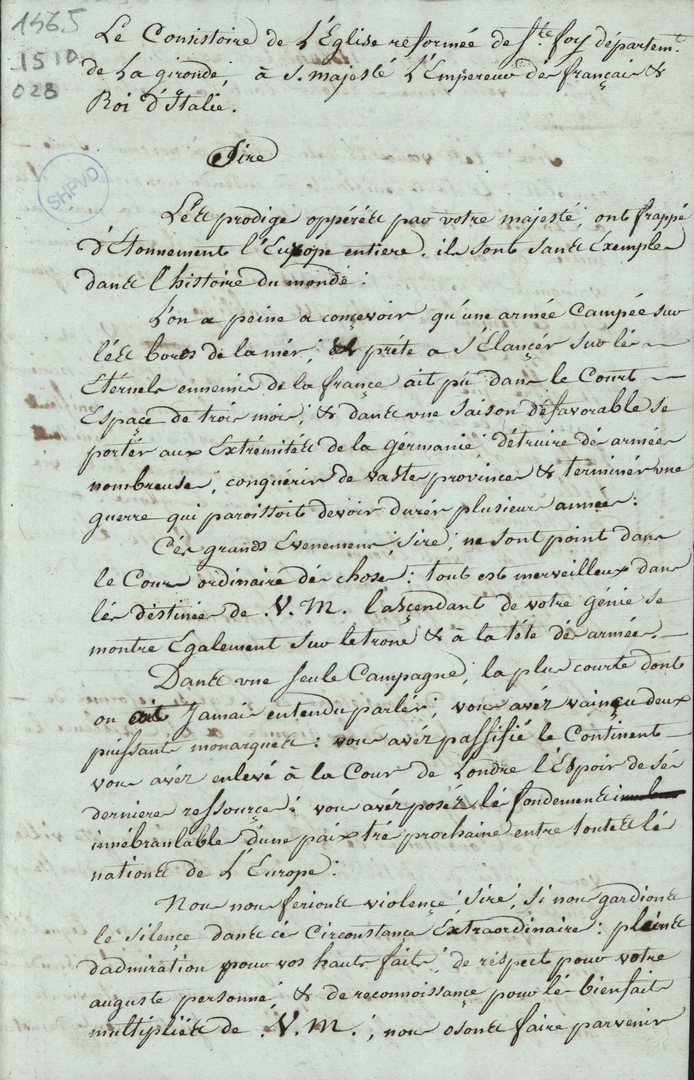 1565
1510
028
Le Consistoire de L'Eglise reformée de Ste foy départemt.
de La gironde, à S. majesté L'Empereur des français &
Roi d'Italie.
Sire
SHPVD
Les prodiges oppérés par votre majesté, ont frappé
d'Etonnement l'Europe entiere. ils sont sans Exemples
dans l'histoire du monde:
L'on a peine a concevoir qu'une armée Campée sur
lés bords de la mér, & préte a s'Elancér sur lés
Eternels ennemis de la france ait pû dans le Court
Espace de trois mois, & dans une saison défavorable se
portér aux Extrémités de la gérmanie, détruire dés armées
nombreuses, conquérir de vastes provinces & terminér une
guerre qui paroissoit devoir durér plusieurs années:
Cés grands Evenemens, Sire, ne sont point dans
le Cours ordinaire dés choses: tout est merveilleux dans
lés déstinées de V. M. l'asçendant de votre génie se
montre Egalement sur le trone & à la téte dés armées.
Dans une seule Campagne, la plus courte dont
on ait Jamais entendu parlér, vous avéz vainçu deux
puissants monarques: vous avéz passifié le Continent
vous avéz enlevé à la Cour de Londres l'Espoir de sés
dernieres ressources: vous avéz posés lés fondements
innébranlables d'une paix trés prochaine entre toutes lés
nations de L'Europe:
Nous nous ferions violence, Sire, si nous gardions
le silençe dans cés Circonstançes Extraordinaires: pleins
d'admiration pour vos hauts faits, de réspect pour votre
auguste personne, & de reconnoissançe pour lés bienfaits
multipliés de V. M., nous osons faire parvenir